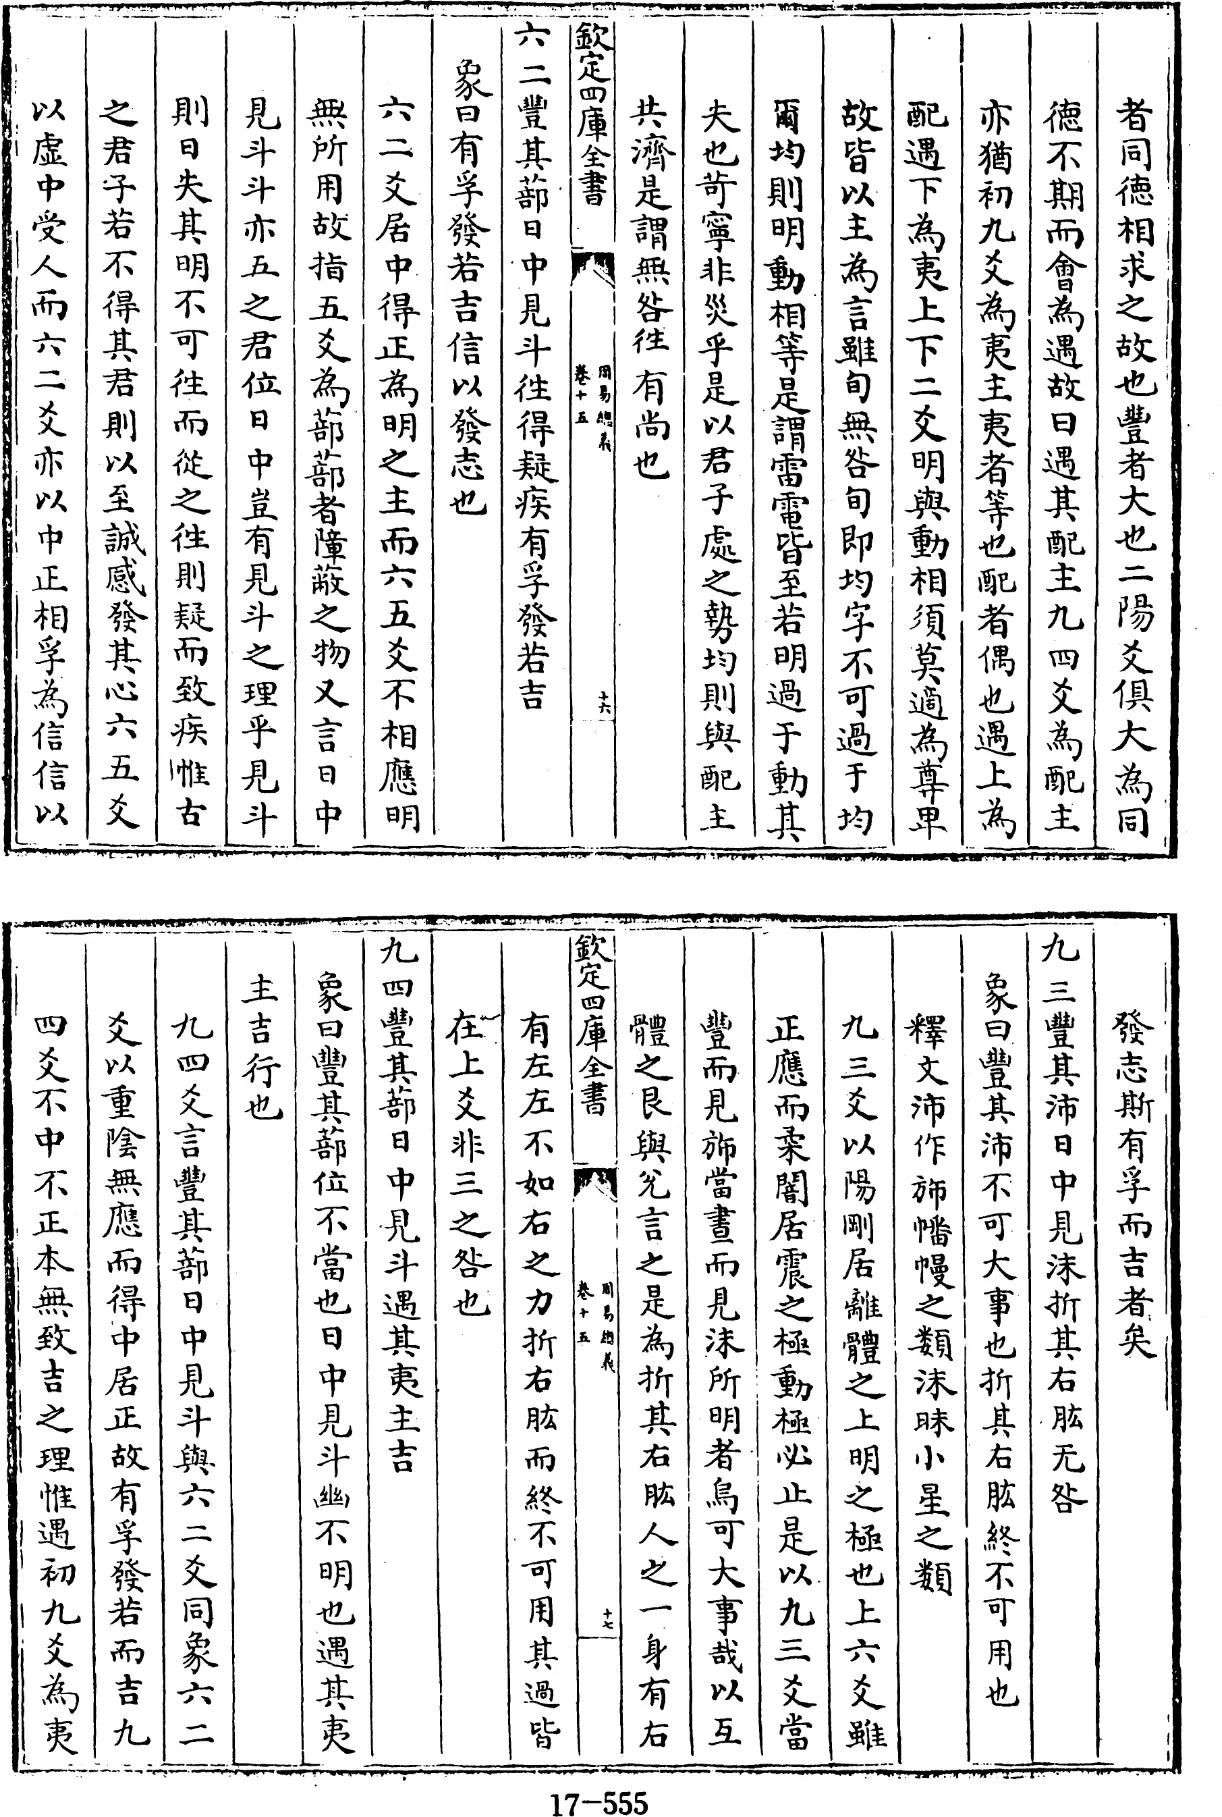 者同德相求之故也豐者大也二陽爻俱大為同
德不期而會為遇故曰遇其配主九四爻為配主
亦猶初九爻為夷主夷者等也配者偶也遇上為
配遇下為夷上下二爻明與動相須莫適為尊卑
故皆以主為言雖旬無咎旬即均字不可過于均
爾均則明動相等是謂雷電皆至若明過于動其
失也苛寧非災乎是以君子處之勢均則與配主
共濟是謂無咎往有尚也
欽定四庫全書
周易總義
卷十五
十六
六二豐其蔀日中見斗往得疑疾有孚發若吉
象曰有孚發若吉信以發志也
六二爻居中得正為明之主而六五爻不相應明
無所用故指五爻為蔀蔀者障蔽之物又言日中
見斗斗亦五之君位日中豈有見斗之理乎見斗
則日失其明不可往而從之往則疑而致疾惟古
之君子若不得其君則以至誠感發其心六五爻
以虛中受人而六二爻亦以中正相孚為信信以
發志斯有孚而吉者矣
九三豐其沛日中見沬折其右肱无咎
象曰豐其沛不可大事也折其右肱終不可用也
釋文沛作旆幡幔之類沬昧小星之類
九三爻以陽剛居離體之上明之極也上六爻雖
正應而柔闇居震之極動極必止是以九三爻當
豐而見旆當晝而見沬所明者烏可大事哉以互
體之艮與兌言之是為折其右肱人之一身有右
欽定四庫全書
周易總義
卷十五
十七
有左左不如右之力折右肱而終不可用其過皆
在上爻非三之咎也
九四豐其蔀日中見斗遇其夷主吉
象曰豐其蔀位不當也日中見斗幽不明也遇其夷
主吉行也
九四爻言豐其蔀日中見斗與六二爻同象六二
爻以重陰無應而得中居正故有孚發若而吉九
四爻不中不正本無致吉之理惟遇初九爻為夷
17-555